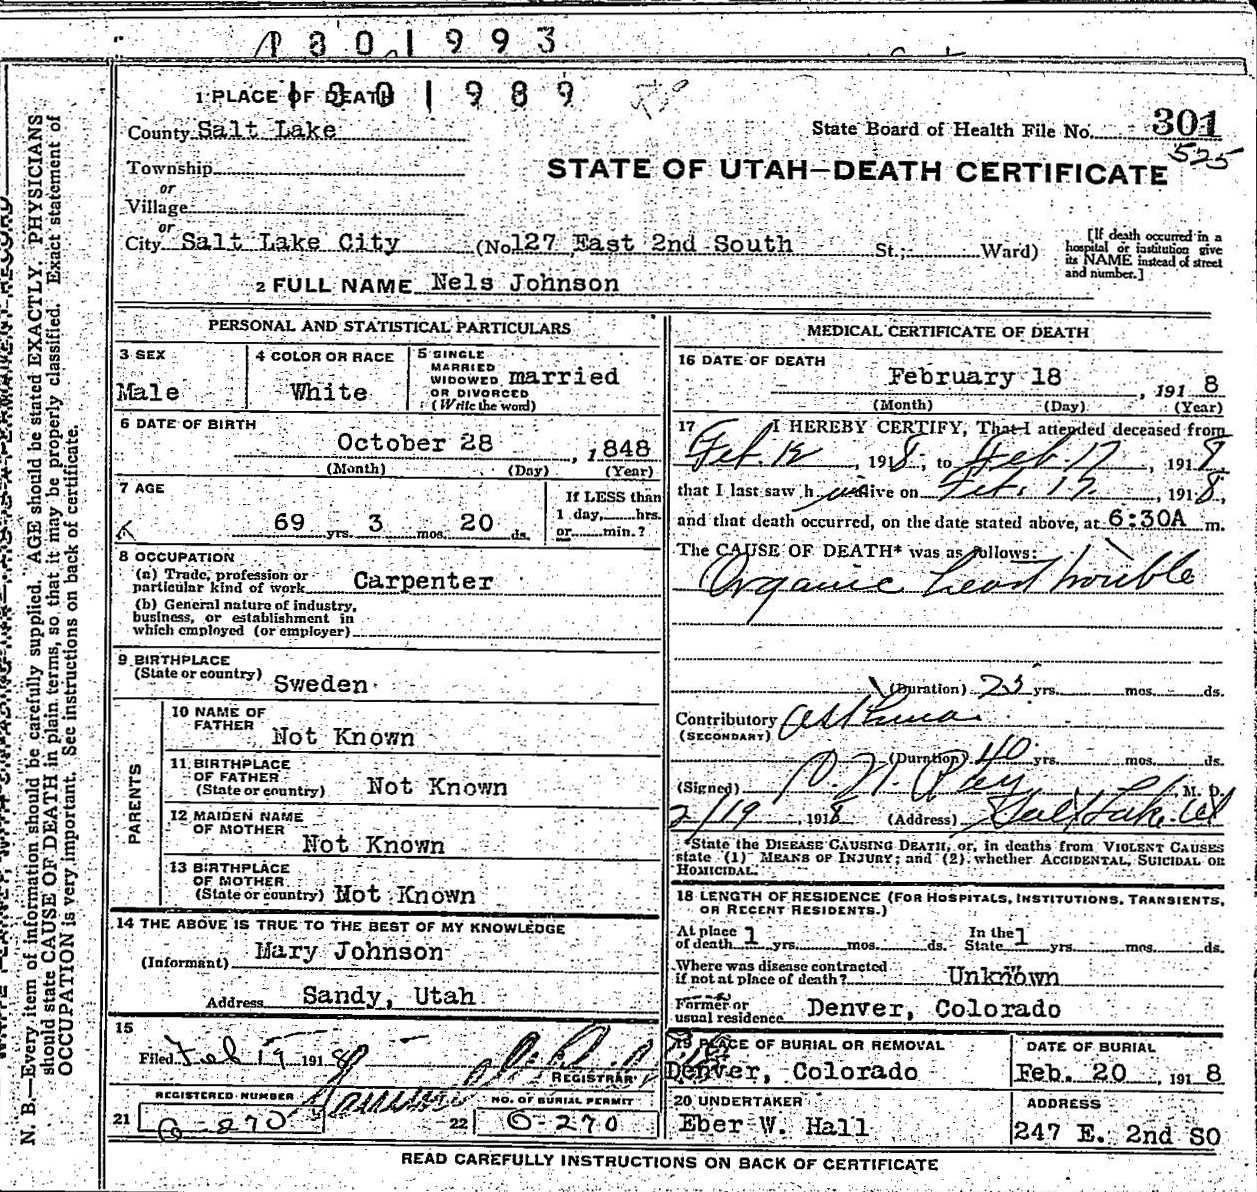 1801993
1 PLACE OF DEATH 1801989
County Salt Lake
State Board of Health File No. 301
525
Township
or
Village
or
STATE OF UTAH—DEATH CERTIFICATE
City Salt Lake City (No. 127 East 2nd South St.; Ward)
[If death occurred in a hospital or institution give its NAME instead of street and number.]
2 FULL NAME Nels Johnson
PERSONAL AND STATISTICAL PARTICULARS
3 SEX
Male
4 COLOR OR RACE
White
5 SINGLE
MARRIED
WIDOWED
OR DIVORCED
(Write the word)
married
6 DATE OF BIRTH
October 28, 1848
(Month) (Day) (Year)
7 AGE
69 yrs. 3 mos. 20 ds.
If LESS than
1 day, hrs.
or min.?
8 OCCUPATION
(a) Trade, profession or
particular kind of work Carpenter
(b) General nature of industry,
business, or establishment in
which employed (or employer)
9 BIRTHPLACE
(State or country) Sweden
PARENTS
10 NAME OF
FATHER Not Known
11 BIRTHPLACE
OF FATHER
(State or country) Not Known
12 MAIDEN NAME
OF MOTHER
Not Known
13 BIRTHPLACE
OF MOTHER
(State or country) Not Known
14 THE ABOVE IS TRUE TO THE BEST OF MY KNOWLEDGE
(Informant) Mary Johnson
Address Sandy, Utah
15
Filed Feb 19 1918
REGISTRAR
REGISTERED NUMBER
21 270
NO. OF BURIAL PERMIT
22 6-270
MEDICAL CERTIFICATE OF DEATH
16 DATE OF DEATH
February 18, 1918
(Month) (Day) (Year)
17 I HEREBY CERTIFY, That I attended deceased from
Feb. 12, 1918, to Feb. 17, 1918,
that I last saw him alive on Feb. 17, 1918,
and that death occurred, on the date stated above, at 6:30A m.
The CAUSE OF DEATH* was as follows:
Organic heart trouble
(Duration) 25 yrs. mos. ds.
Contributory Asthma
(SECONDARY)
(Duration) 40 yrs. mos. ds.
(Signed) Ray, M. D.
2/19, 1918 (Address) Salt Lake. Ut
*State the DISEASE CAUSING DEATH, or, in deaths from VIOLENT CAUSES
state (1) MEANS OF INJURY; and (2) whether ACCIDENTAL, SUICIDAL OR
HOMICIDAL.
18 LENGTH OF RESIDENCE (FOR HOSPITALS, INSTITUTIONS, TRANSIENTS,
OR RECENT RESIDENTS.)
At place
of death 1 yrs. mos. ds. In the
State 1 yrs. mos. ds.
Where was disease contracted
if not at place of death? Unknown
Former or
usual residence Denver, Colorado
19 PLACE OF BURIAL OR REMOVAL
Denver, Colorado
DATE OF BURIAL
Feb. 20, 1918
20 UNDERTAKER
Eber W. Hall
ADDRESS
247 E. 2nd SO
READ CAREFULLY INSTRUCTIONS ON BACK OF CERTIFICATE
N. B.—Every item of information should be carefully supplied. AGE should be stated EXACTLY. PHYSICIANS
should state CAUSE OF DEATH in plain terms, so that it may be properly classified. Exact statement of
OCCUPATION is very important. See instructions on back of certificate.